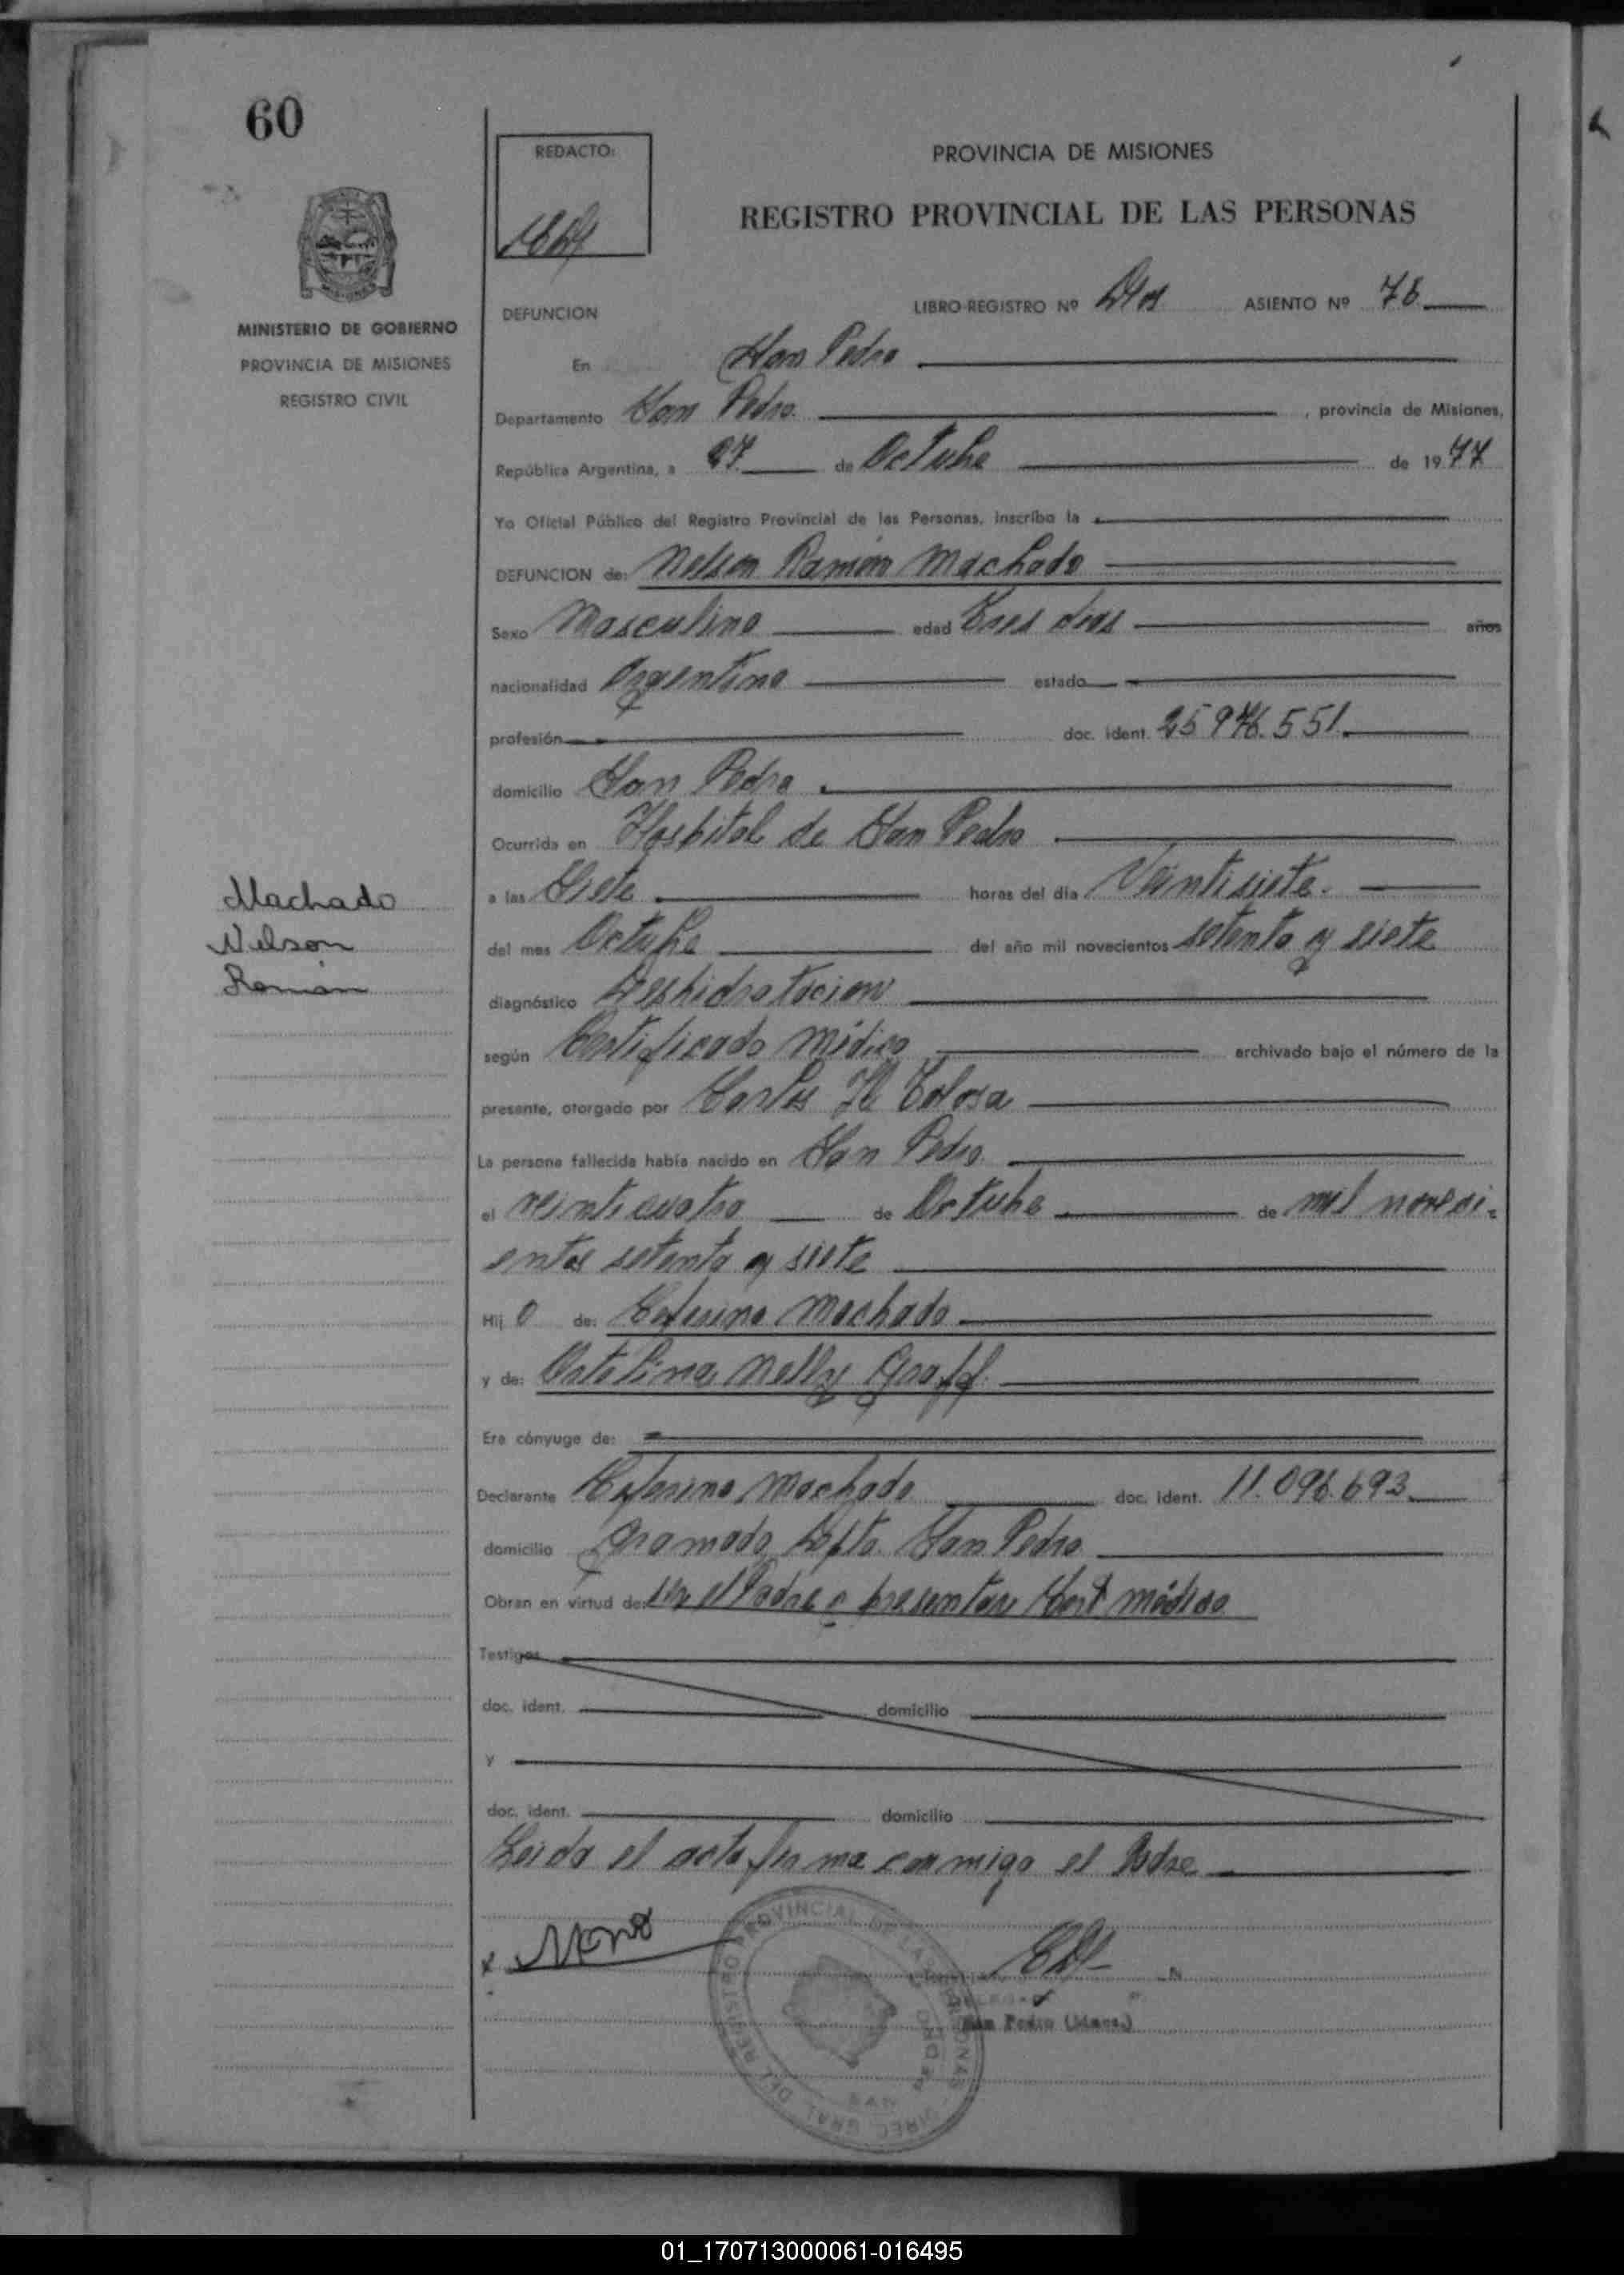 60
REDACTO:
PROVINCIA DE MISIONES
REGISTRO PROVINCIAL DE LAS PERSONAS
MINISTERIO DE GOBIERNO
PROVINCIA DE MISIONES
REGISTRO CIVIL
DEFUNCION LIBRO-REGISTRO Nº Dos ASIENTO Nº 76
En San Pedro
Departamento San Pedro , provincia de Misiones,
República Argentina, a 27 de Octubre de 1977
Yo Oficial Público del Registro Provincial de las Personas, inscribo la
DEFUNCION de: Nelson Ramón Machado
Sexo Masculino edad Tres dias años
nacionalidad Argentina estado
profesión doc. ident. 25.976.551
domicilio San Pedro
Ocurrida en Hospital de San Pedro
a las Siete horas del día Veintisiete
del mes Octubre del año mil novecientos setenta y siete
Machado
Nelson
Ramón
diagnóstico Deshidratacion
según Certificado Médico archivado bajo el número de la
presente, otorgado por Carlos H Tolosa
La persona fallecida había nacido en San Pedro
el veinticuatro de Octubre de mil noveci-
entos setenta y siete
Hijo de: Ceferino Machado
y de: Catalina Nelly Graff
Era cónyuge de:
Declarante Ceferino Machado doc. ident. 11.096.693
domicilio Gramado Dpto. San Pedro
Obran en virtud de: Ser el Padre y presentar Cert médico
Testigos
doc. ident. domicilio
y
doc. ident. domicilio
Leida el acta firma conmigo el Padre
REGISTRO PROVINCIAL DE LAS PERSONAS
DIREC. GRAL. DEL
SAN PEDRO
San Pedro (Mnes.)
01_170713000061-016495